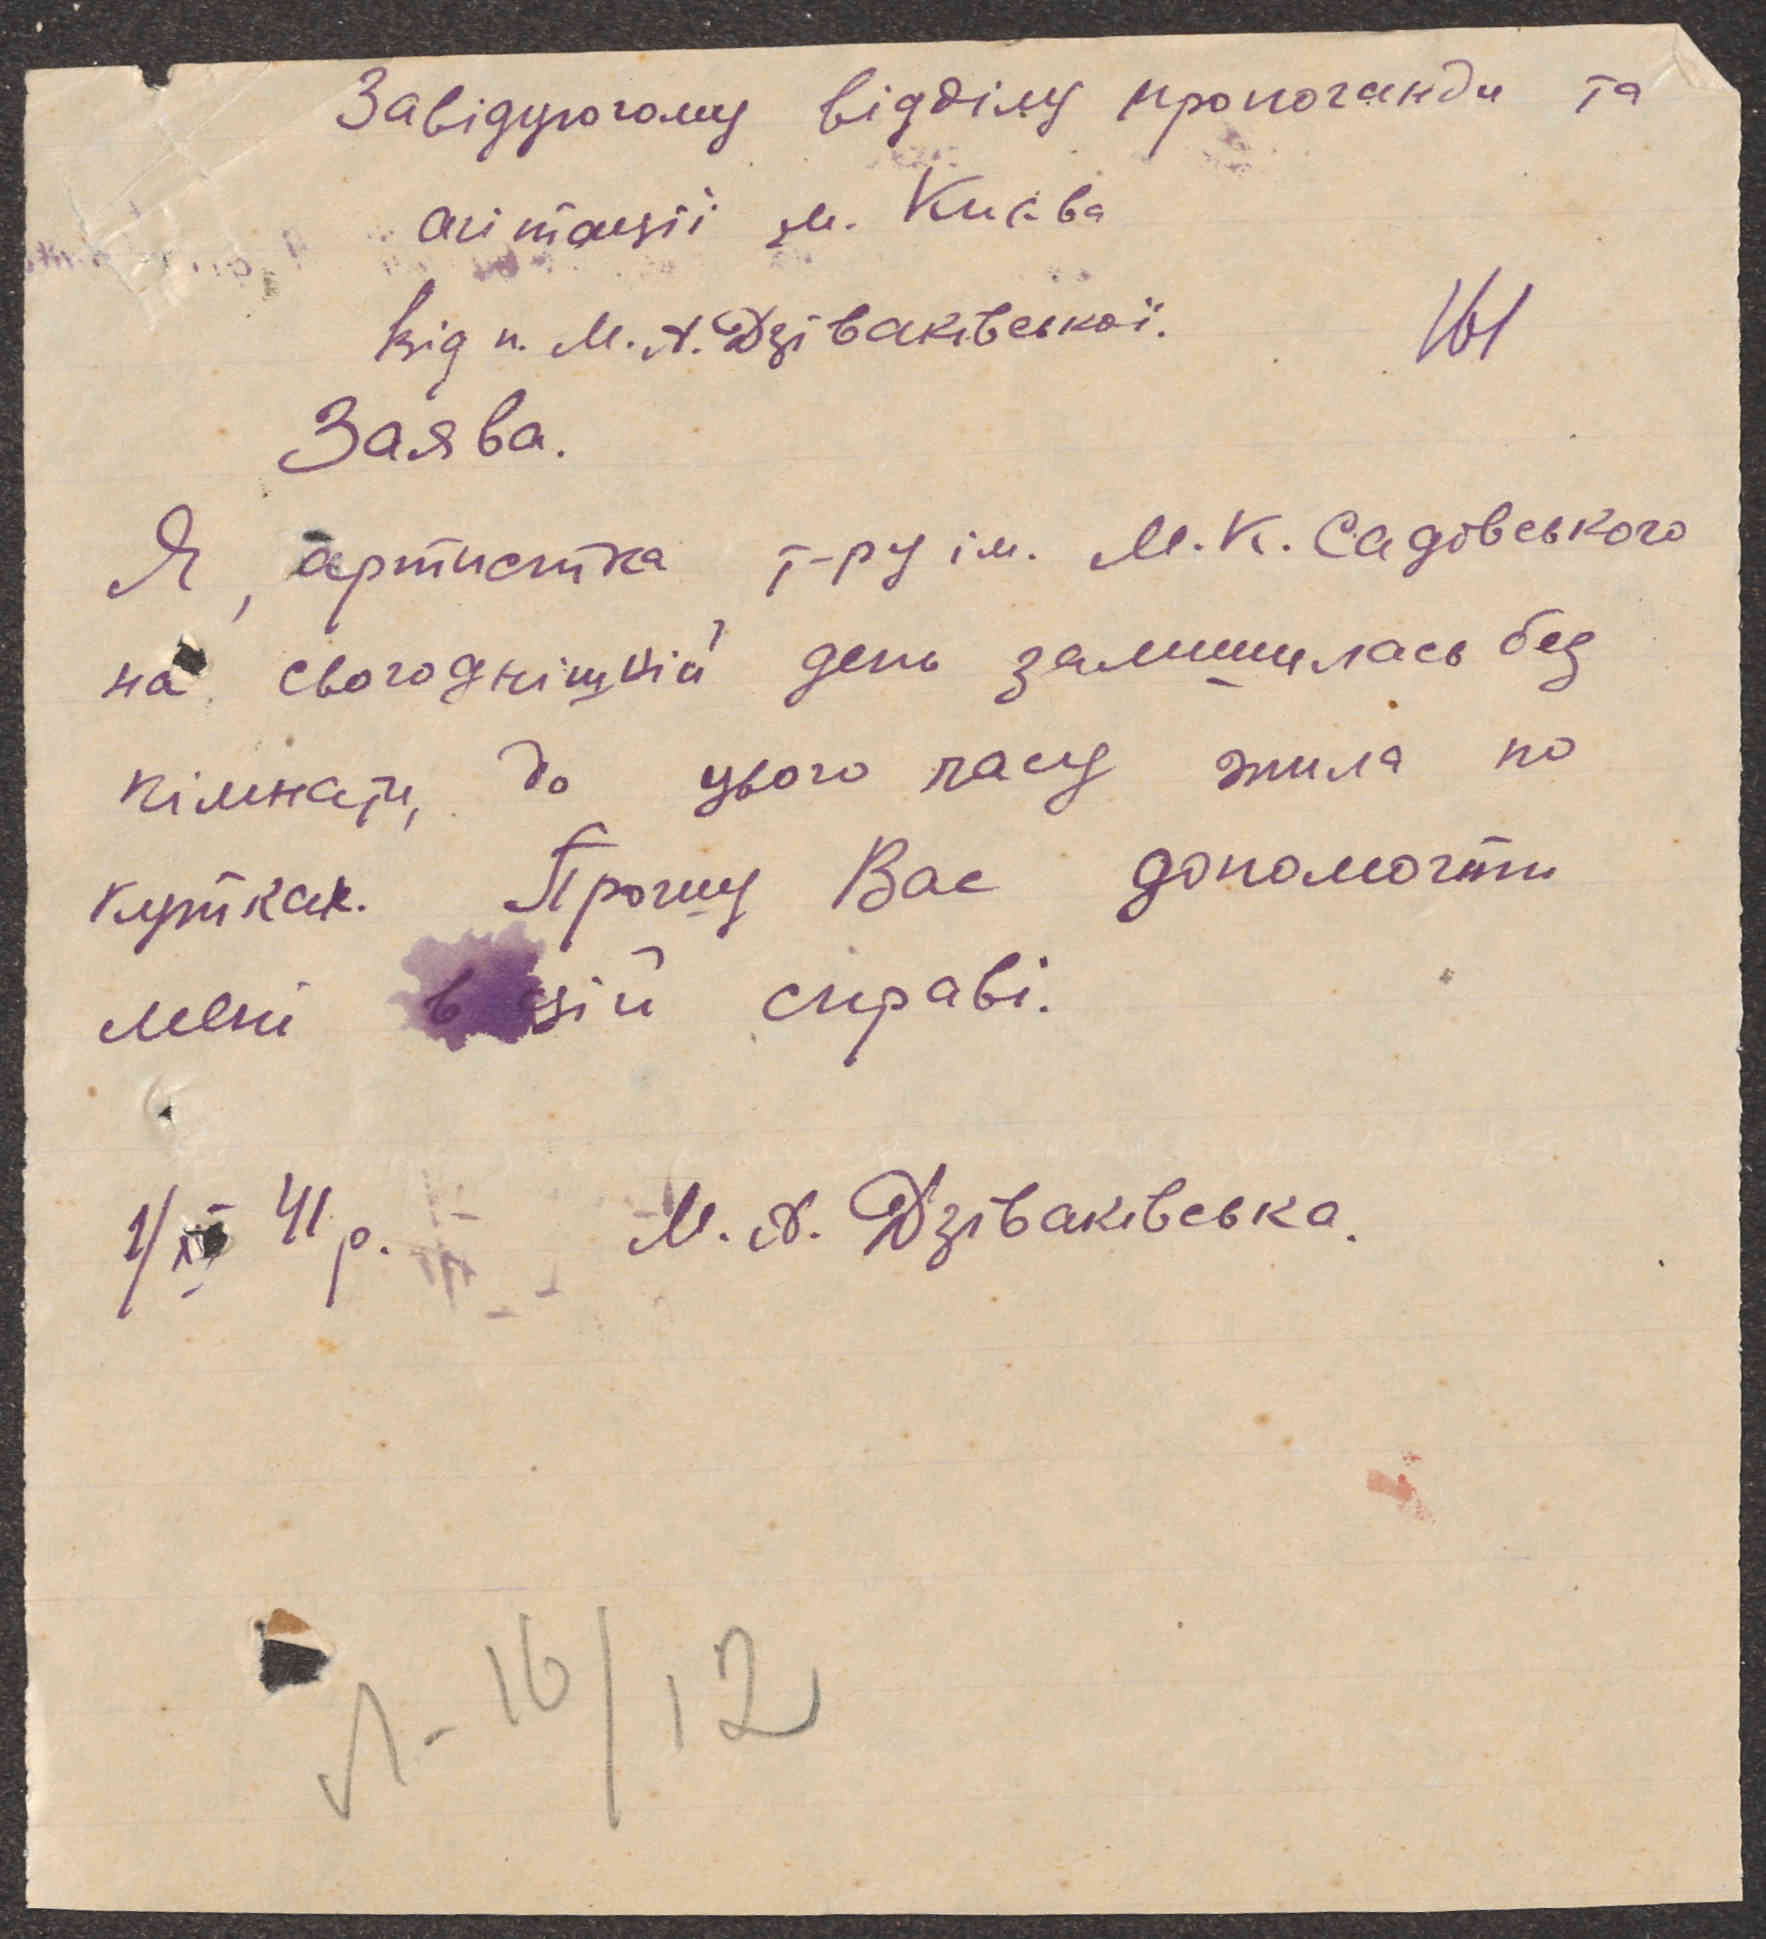 Завідуючому відділу пропоганди та
агітації м. Києва
від п. М. А. Дзіваківської.
161
Заява.
Я, артистка т-ру ім. М. К. Садовського
на свогоднішній день залишилась без
кімнати, до цього часу жила по
кутках. Прошу Вас допомогти
мені в цій справі.
1/XII 41 р. М. А. Дзіваківська.
Л-16/12